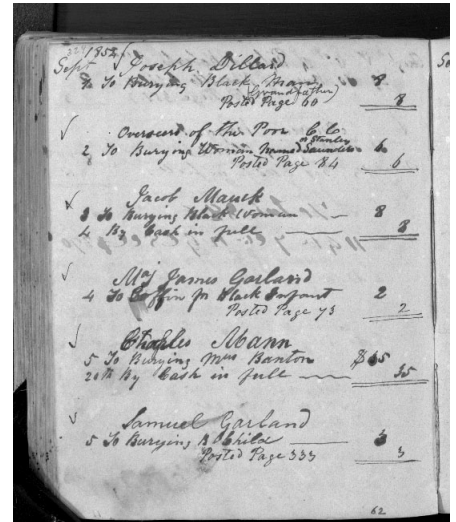 1852
Sept Joseph Dillard
To Burying Black Man 8
(Grandfather)
Posted Page 60 8
Overseers of the Poor C. C.
or Stanley
2 To Burying Woman Named Saunders 6
Posted Page 84 6
Jacob Mauck
3 To Burying Black Woman 8
4 By Cash in full 8
Maj James Garland
4 To Coffin for Black Infant 2
Posted Page 73 2
Charles Mann
5 To Burying Mrs Banton $35
20th By Cash in full 35
Samuel Garland
5 To Burying B. Child 3
Posted Page 333 3
62